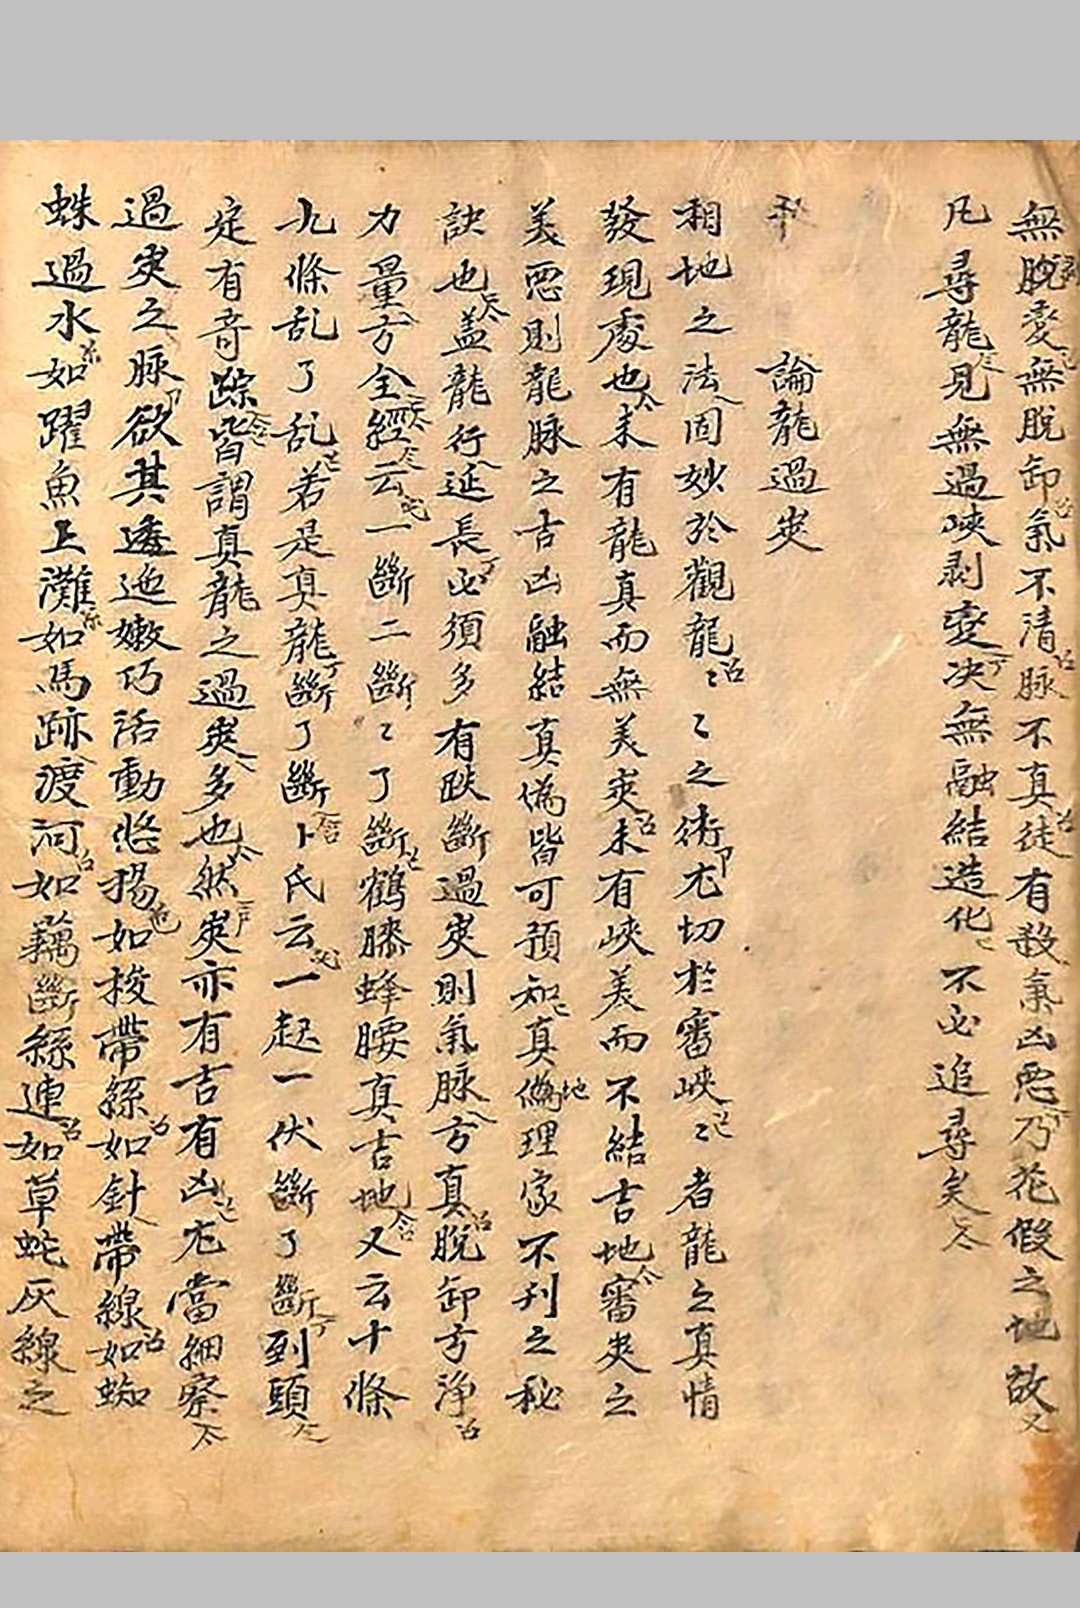 無脫變無脫卸氣不清脉不真徒有殺氣凶悪乃花假之地故
凡尋龍見無過峽剥變决無融結造化不必追尋矣
論龍過𡗝
相地之法固妙於觀龍〻〻之術尤切於審峽〻者龍之真情
發現處也未有龍真而無美𡗝未有峽美而不結吉地審𡗝之
美悪則龍脉之吉凶融結真偽皆可預知真偽地理家不刋之秘
訣也盖龍行延長必須多有跌斷過𡗝則氣脉方真脫卸方淨
力量方全經云一斷二斷〻了斷鶴膝蜂腰真吉地又云十條
九條乱了乱若是真龍斷了斷卜氏云一起一伏斷了斷到頭
定有竒踪皆謂真龍之過𡗝多也然𡗝亦有吉有凶尤當細察
過𡗝之脉欲其透迤嫩巧活動悠揚如梭帶絲如針帶線如蜘
蛛過水如躍魚上灘如馬跡渡河如藕斷絲連如草蛇灰線之